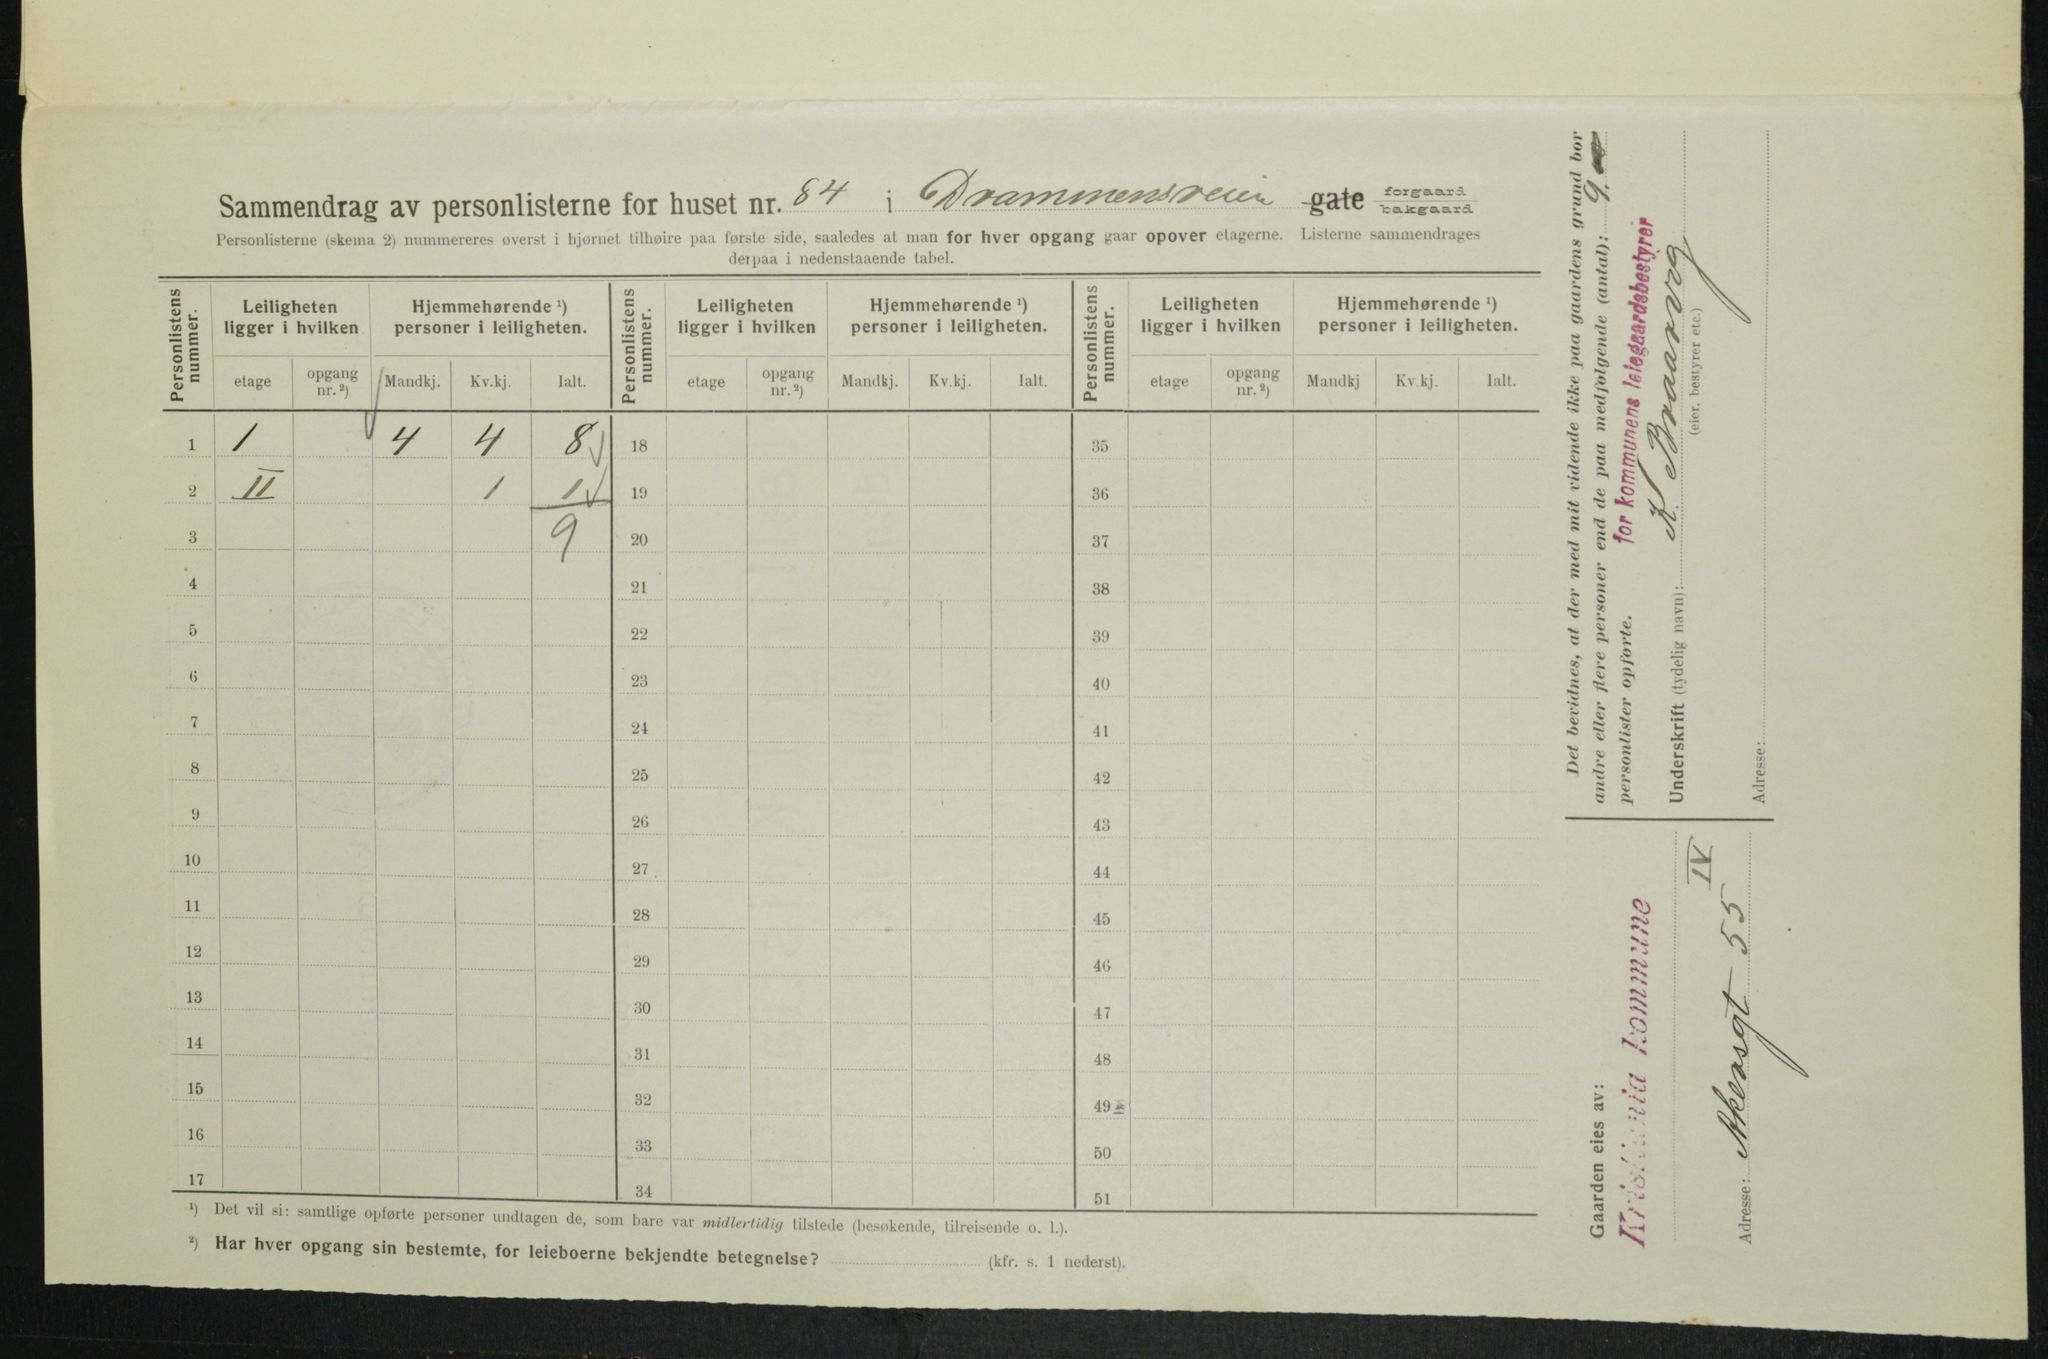 Sammendrag av personlisterne for huset nr. 84 i Drammensveien gate forgaard bakgaard
Personlisterne (skema 2) nummereres øverst i hjørnet tilhøire paa første side, saaledes at man for hver opgang gaar opover etagerne. Listerne sammendrages
derpaa i nedenstaaende tabel.
Personlistens nummer. Leiligheten ligger i hvilken Hjemmehørende ¹) personer i leiligheten. Personlistens nummer. Leiligheten ligger i hvilken Hjemmehørende ¹) personer i leiligheten. Personlistens nummer. Leiligheten ligger i hvilken Hjemmehørende ¹) personer i leiligheten.
etage opgang nr. ²) Mandkj. Kv.kj. Ialt. etage opgang nr. ²) Mandkj. Kv.kj. Ialt. etage opgang nr. ²) Mandkj Kv.kj. Ialt.
1 1 4 4 8 18 35
2 II 1 1 19 36
3 9 20 37
4 21 38
5 22 39
6 23 40
7 24 41
8 25 42
9 26 43
10 27 44
11 28 45
12 29 46
13 30 47
14 31 48
15 32 49
16 33 50
17 34 51
¹) Det vil si: samtlige opførte personer undtagen de, som bare var midlertidig tilstede (besøkende, tilreisende o. l.).
²) Har hver opgang sin bestemte, for leieboerne bekjendte betegnelse? (kfr. s. 1 nederst).
Det bevidnes, at der med mit vidende ikke paa gaardens grund bor
andre eller flere personer end de paa medfølgende (antal): 9
personlister opførte.
for kommunens leiegaardsbestyrer
Underskrift (tydelig navn): K. Braarvig
(eier, bestyrer etc.)
Adresse:
Gaarden eies av:
Kristiania kommune
Adresse: Akersgt 55 IV